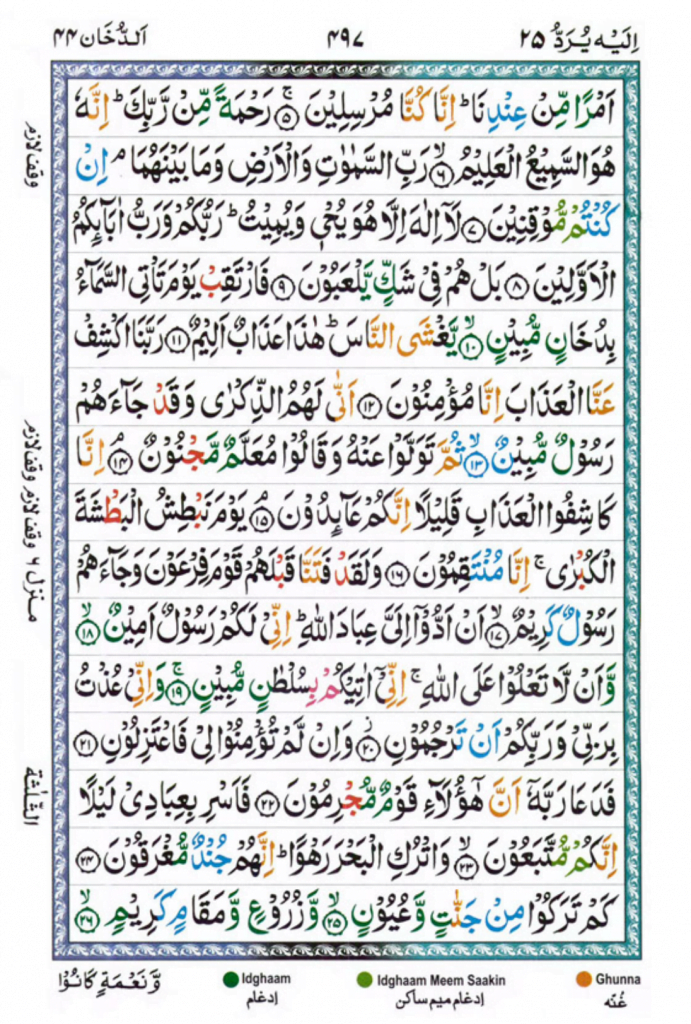 اِلَیْهِ یُرَدُّ ۲۵ ۴۹۷ اَلدُّخَان ۴۴
اَمْرًا مِّنْ عِنْدِنَا ؕ اِنَّا كُنَّا مُرْسِلِیْنَ ۚ۝۵ رَحْمَةً مِّنْ رَّبِّكَ ؕ اِنَّهٗ
هُوَ السَّمِیْعُ الْعَلِیْمُ ۙ۝۶ رَبِّ السَّمٰوٰتِ وَ الْاَرْضِ وَ مَا بَیْنَهُمَا ۘ اِنْ
كُنْتُمْ مُّوْقِنِیْنَ ۝۷ لَاۤ اِلٰهَ اِلَّا هُوَ یُحْیٖ وَ یُمِیْتُ ؕ رَبُّكُمْ وَ رَبُّ اٰبَآىِٕكُمُ
الْاَوَّلِیْنَ ۝۸ بَلْ هُمْ فِیْ شَكٍّ یَّلْعَبُوْنَ ۝۹ فَارْتَقِبْ یَوْمَ تَاْتِی السَّمَآءُ
بِدُخَانٍ مُّبِیْنٍ ۙ۝۱۰ یَّغْشَی النَّاسَ ؕ هٰذَا عَذَابٌ اَلِیْمٌ ۝۱۱ رَبَّنَا اكْشِفْ
عَنَّا الْعَذَابَ اِنَّا مُؤْمِنُوْنَ ۝۱۲ اَنّٰی لَهُمُ الذِّكْرٰی وَ قَدْ جَآءَهُمْ
رَسُوْلٌ مُّبِیْنٌ ۙ۝۱۳ ثُمَّ تَوَلَّوْا عَنْهُ وَ قَالُوْا مُعَلَّمٌ مَّجْنُوْنٌ ۘ۝۱۴ اِنَّا
كَاشِفُوا الْعَذَابِ قَلِیْلًا اِنَّكُمْ عَآىِٕدُوْنَ ۘ۝۱۵ یَوْمَ نَبْطِشُ الْبَطْشَةَ
الْكُبْرٰی ۚ اِنَّا مُنْتَقِمُوْنَ ۝۱۶ وَ لَقَدْ فَتَنَّا قَبْلَهُمْ قَوْمَ فِرْعَوْنَ وَ جَآءَهُمْ
رَسُوْلٌ كَرِیْمٌ ۙ۝۱۷ اَنْ اَدُّوْۤا اِلَیَّ عِبَادَ اللّٰهِ ؕ اِنِّیْ لَكُمْ رَسُوْلٌ اَمِیْنٌ ۙ۝۱۸
وَّ اَنْ لَّا تَعْلُوْا عَلَی اللّٰهِ ۚ اِنِّیْۤ اٰتِیْكُمْ بِسُلْطٰنٍ مُّبِیْنٍ ۚ۝۱۹ وَ اِنِّیْ عُذْتُ
بِرَبِّیْ وَ رَبِّكُمْ اَنْ تَرْجُمُوْنِ ؗ۝۲۰ وَ اِنْ لَّمْ تُؤْمِنُوْا لِیْ فَاعْتَزِلُوْنِ ۝۲۱
فَدَعَا رَبَّهٗۤ اَنَّ هٰۤؤُلَآءِ قَوْمٌ مُّجْرِمُوْنَ ۝۲۲ فَاَسْرِ بِعِبَادِیْ لَیْلًا
اِنَّكُمْ مُّتَّبَعُوْنَ ۙ۝۲۳ وَ اتْرُكِ الْبَحْرَ رَهْوًا ؕ اِنَّهُمْ جُنْدٌ مُّغْرَقُوْنَ ۝۲۴
كَمْ تَرَكُوْا مِنْ جَنّٰتٍ وَّ عُیُوْنٍ ۙ۝۲۵ وَّ زُرُوْعٍ وَّ مَقَامٍ كَرِیْمٍ ۙ۝۲۶
وقف لازم
وقف لازم وقف لازم
منزل ۶
الثلثة
Ghunna Idghaam Meem Saakin Idghaam وَّ نَعْمَةٍ كَانُوْا
غُنّه ادغام میم ساکن ادغام